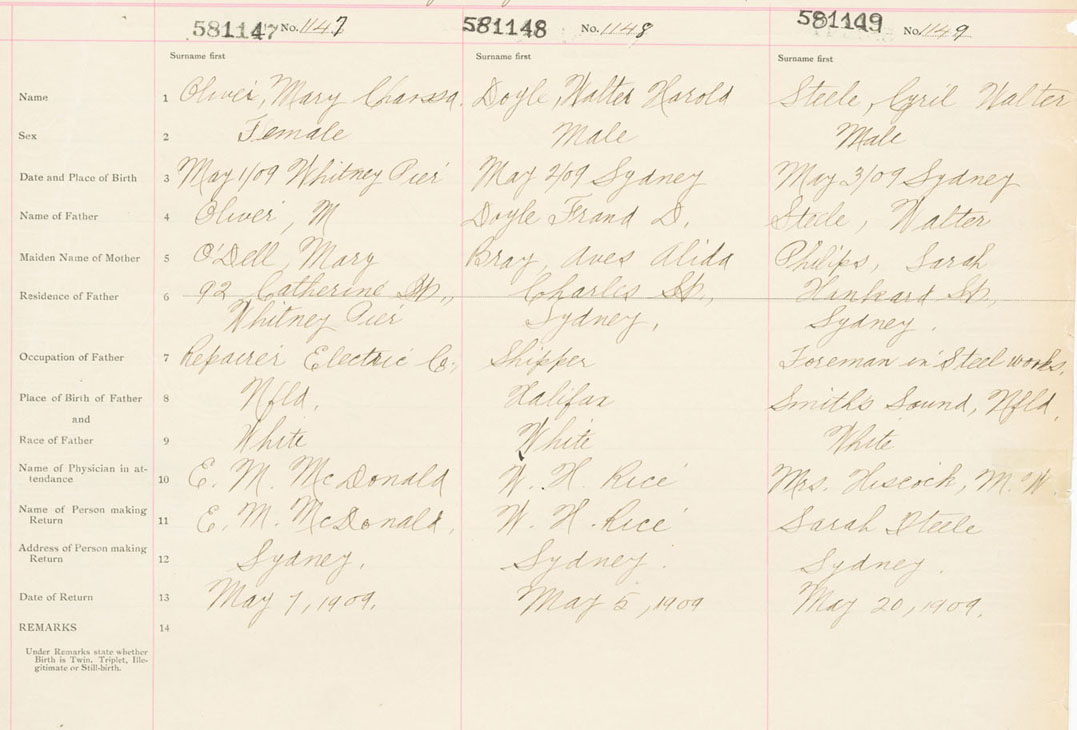 581147 No. 1147 581148 No. 1148 581149 No. 1149
Surname first Surname first Surname first
Name 1 Oliver, Mary Doyle, Walter Harold Steele, Cyril Walter
Sex 2 Female Male Male
Date and Place of Birth 3 May 1/09 Whitney Pier May 2/09 Sydney May 3/09 Sydney
Name of Father 4 Oliver, M Doyle Frand D. Steele, Walter
Maiden Name of Mother 5 O'Dell, Mary Bray, Aves Alida Philips, Sarah
Residence of Father 6 92 Catherine St., Charles St., St,
Whitney Pier Sydney, Sydney.
Occupation of Father 7 Repairer Electric Co; Shipper Foreman in Steel works.
Place of Birth of Father 8 Nfld. Halifax Smith's Sound, Nfld.
and
Race of Father 9 White White White
Name of Physician in at-
tendance 10 E. M. McDonald W. H. Rice Mrs. Hiscock, M. W.
Name of Person making
Return 11 E. M. McDonald, W. H. Rice Sarah Steele
Address of Person making
Return 12 Sydney. Sydney. Sydney.
Date of Return 13 May 7, 1909. May 5, 1909 May 20, 1909.
REMARKS 14
Under Remarks state whether
Birth is Twin. Triplet, Ille-
gitimate or Still-birth.